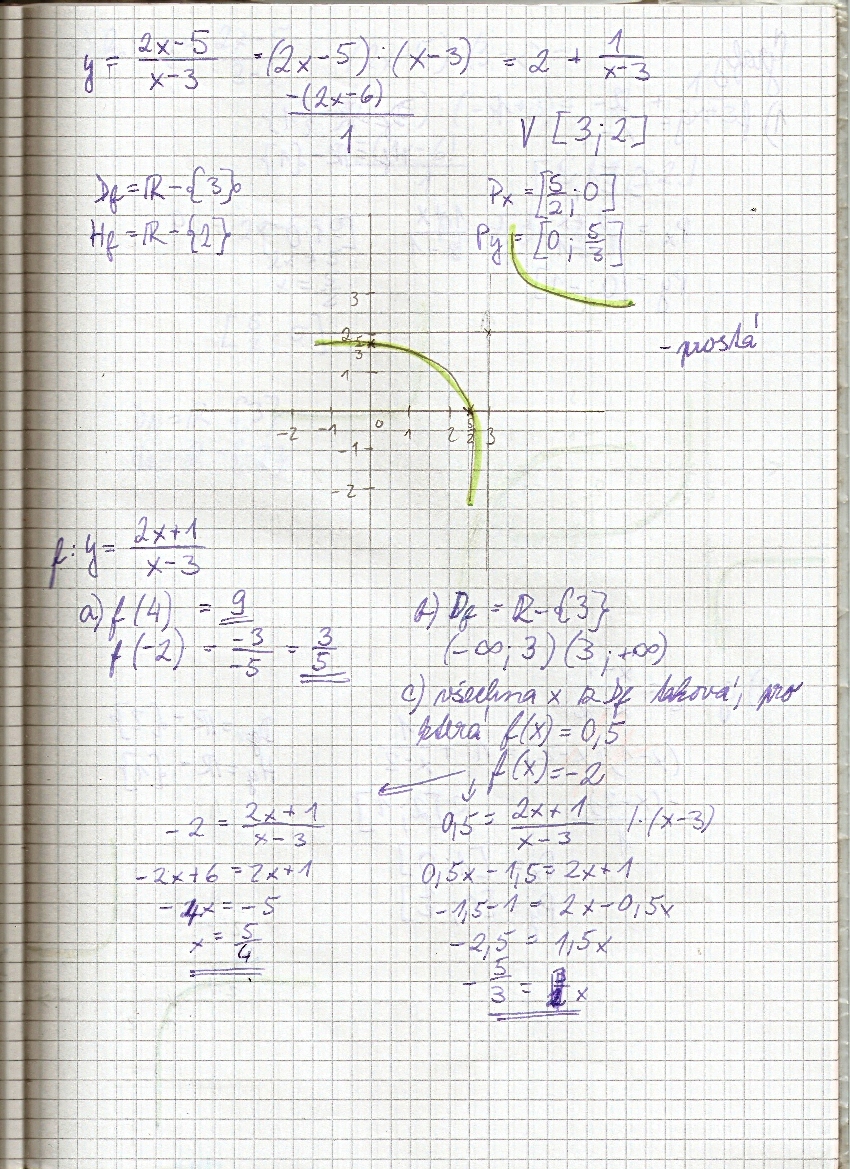 y = (2x-5)/(x-3) = (2x-5) : (x-3) = 2 + 1/(x-3)
-(2x-6)
1
V [3; 2]
Df = R - {3}
Px = [5/2; 0]
Hf = R - {2}
Py = [0; 5/3]
3
- prostá
2 5/3
1
-2 -1 0 1 2 5/2 3
-1
-2
f: y = (2x+1)/(x-3)
a) f(4) = 9
f(-2) = -3/-5 = 3/5
b) Df = R - {3}
(-∞; 3) (3; +∞)
c) všechna x z Df taková, pro
která f(x) = 0,5
f(x) = -2
-2 = (2x+1)/(x-3)
-2x+6 = 2x+1
-4x = -5
x = 5/4
0,5 = (2x+1)/(x-3) /·(x-3)
0,5x - 1,5 = 2x+1
-1,5-1 = 2x-0,5x
-2,5 = 1,5x
-5/3 = x